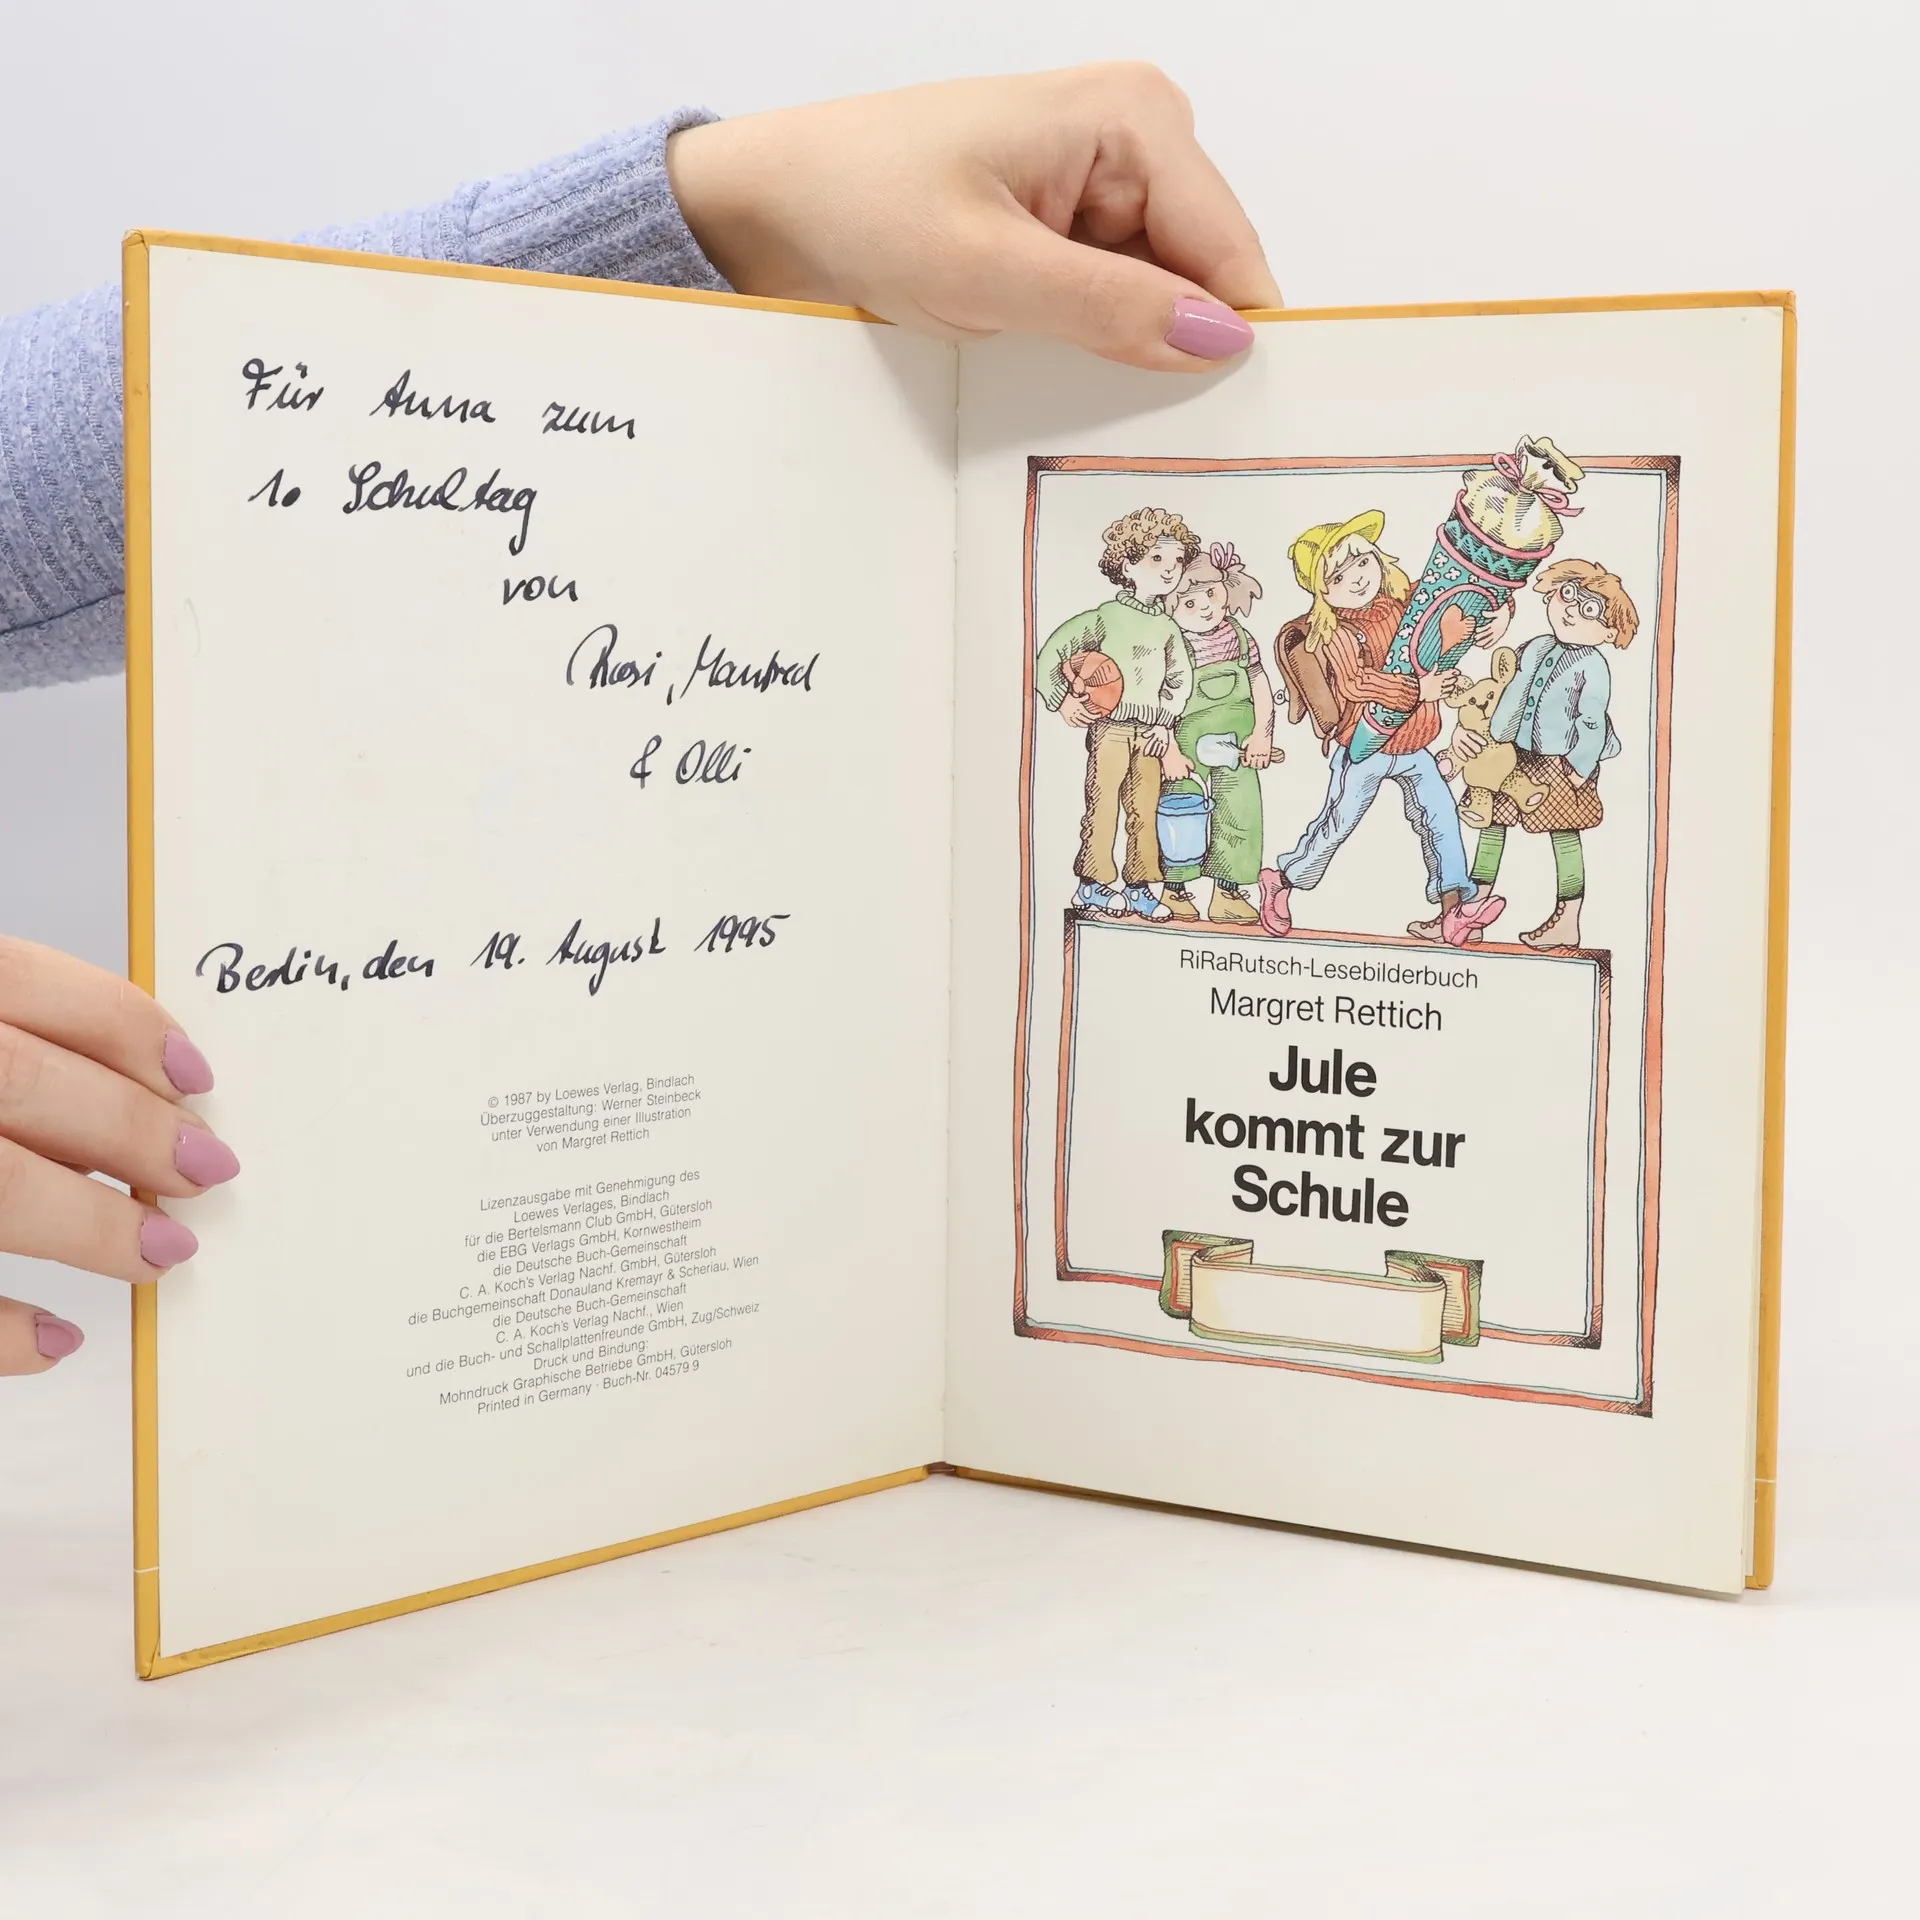 Für Anna zum
1. Schultag
von
Rosi, Manfred
& Olli
Berlin, den 19. August 1995
© 1987 by Loewes Verlag, Bindlach
Überzuggestaltung: Werner Steinbeck
unter Verwendung einer Illustration
von Margret Rettich
Lizenzausgabe mit Genehmigung des
Loewes Verlages, Bindlach
für die Bertelsmann Club GmbH, Gütersloh
die EBG Verlags GmbH, Kornwestheim
die Deutsche Buch-Gemeinschaft
C. A. Koch's Verlag Nachf. GmbH, Gütersloh
die Buchgemeinschaft Donauland Kremayr & Scheriau, Wien
die Deutsche Buch-Gemeinschaft
C. A. Koch's Verlag Nachf., Wien
und die Buch- und Schallplattenfreunde GmbH, Zug/Schweiz
Druck und Bindung:
Mohndruck Graphische Betriebe GmbH, Gütersloh
Printed in Germany · Buch-Nr. 04579 9
RiRaRutsch-Lesebilderbuch
Margret Rettich
Jule
kommt zur
Schule